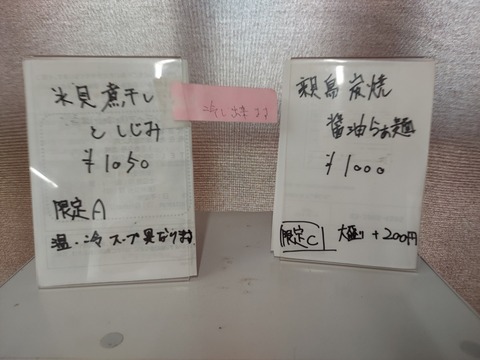 氷見煮干し
としじみ
¥1050
限定A
温・冷 スープ異なります
冷し出来ます
親鳥炭焼
醤油らぁ麺
¥1000
限定C 大盛り +200円